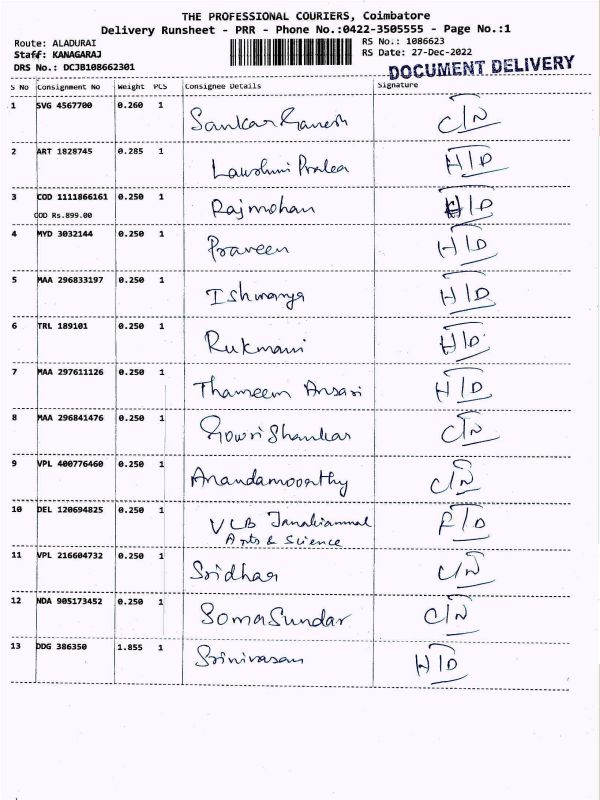 THE PROFESSIONAL COURIERS, Coimbatore
Delivery Runsheet - PRR - Phone No.:0422-3505555 - Page No.:1
Route: ALADURAI RS No.: 1086623
Staff: KANAGARAJ RS Date: 27-Dec-2022
DRS No.: DCJB108662301 DOCUMENT DELIVERY
S No Consignment No Weight PCS Consignee Details Signature
1 SVG 4567700 0.260 1 Sankar Ganesh C/N
2 ART 1828745 0.285 1 H/D
3 COD 1111866161 0.250 1 Rajmohan H/D
COD Rs.899.00
4 MYD 3032144 0.250 1 Praveen H/D
5 MAA 296833197 0.250 1 Ishwarya H/D
6 TRL 189101 0.250 1 Rukmani H/D
7 MAA 297611126 0.250 1 Thameem Ansari H/D
8 MAA 296841476 0.250 1 Gowri Shankar C/N
9 VPL 400776460 0.250 1 Anandamoorthy C/N
10 DEL 120694825 0.250 1 VLB Janakiammal F/D
Arts & Science
11 VPL 216604732 0.250 1 Sridhar C/N
12 NDA 905173452 0.250 1 SomaSundar C/N
13 DDG 386350 1.855 1 Srinivasan H/D